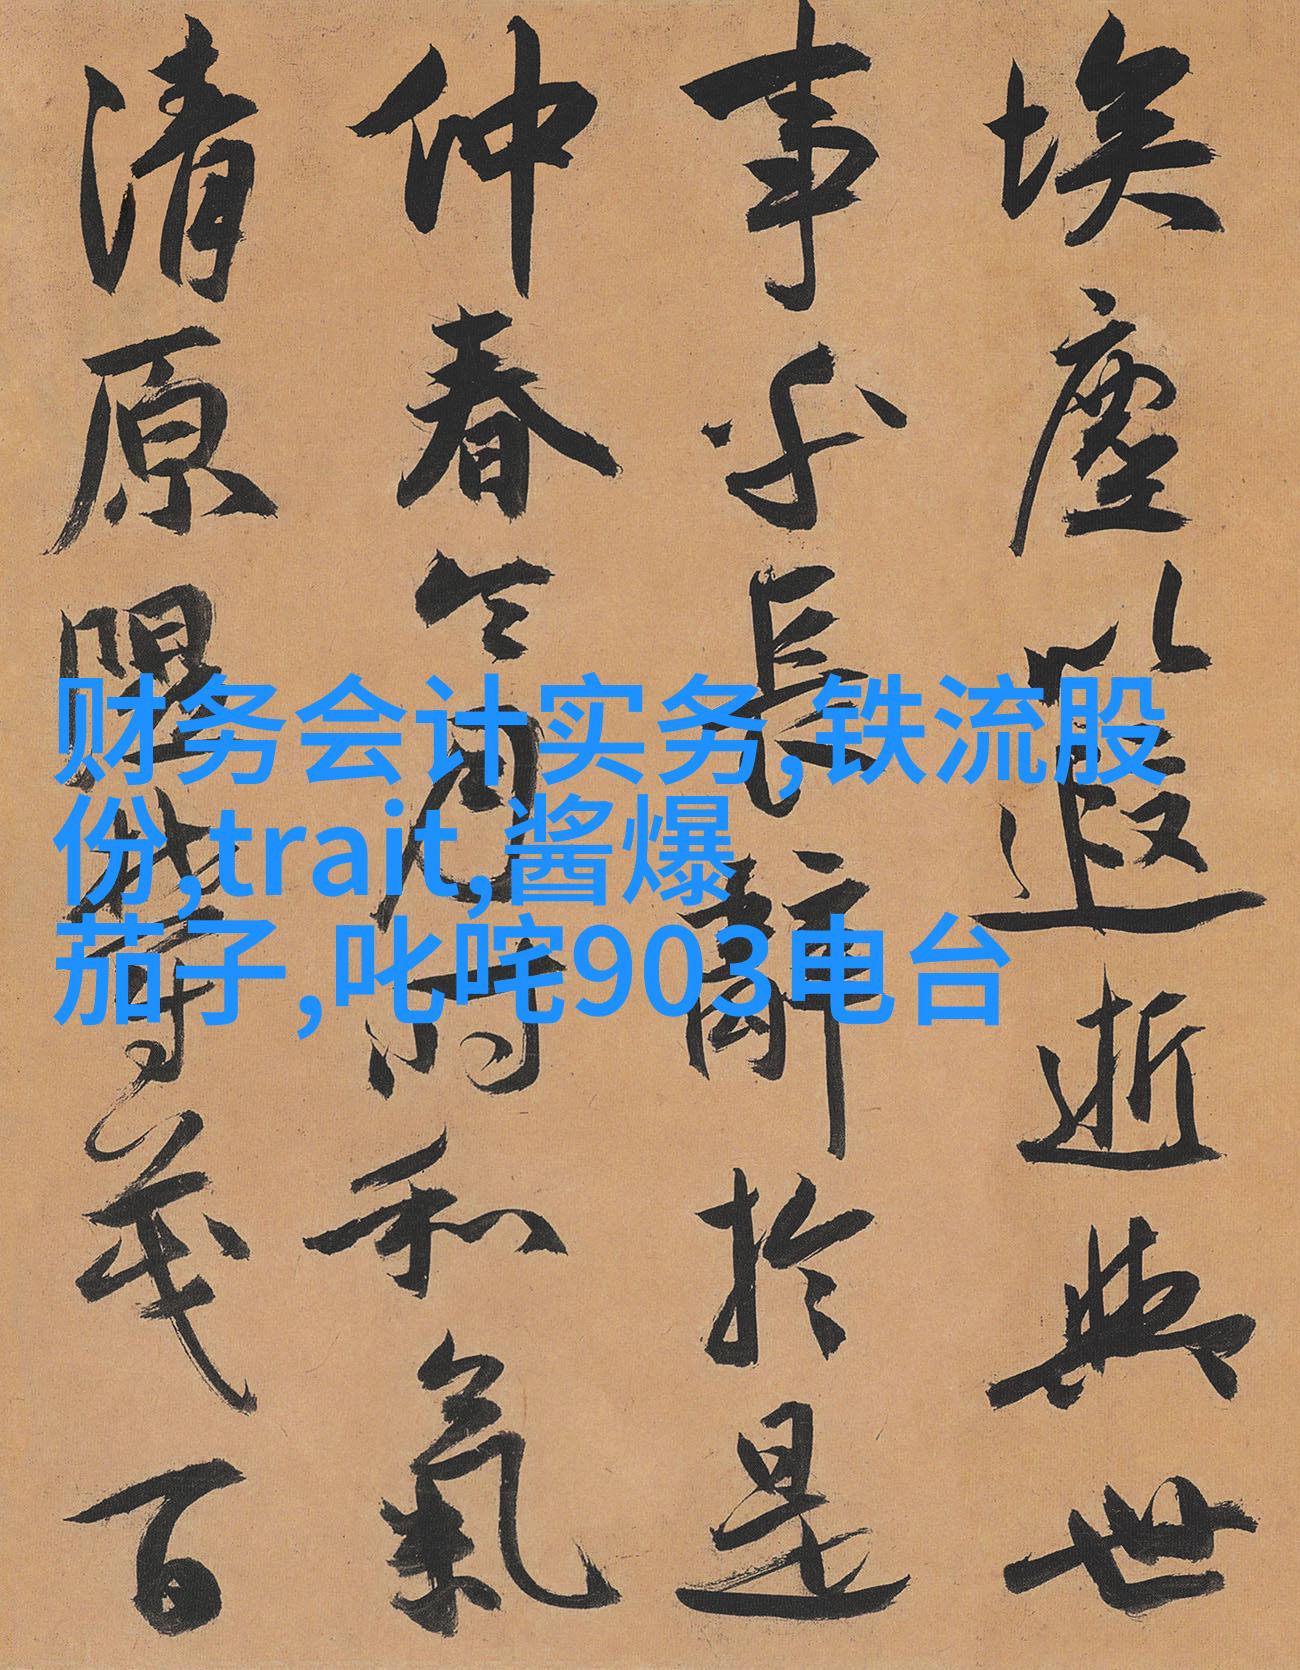 埃塵以遐逝與世
事乎長辭於是
仲春令月時和氣
清原隰鬱茂百
财务会计实务,铁流股
份,trait,酱爆
茄子,叱咤903电台